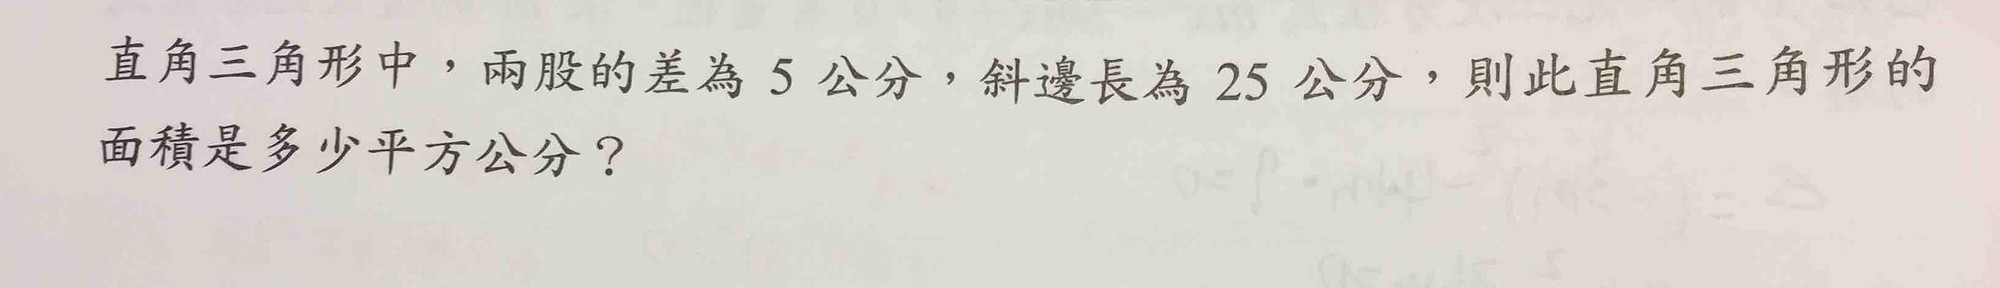 直角三角形中，兩股的差為 5 公分，斜邊長為 25 公分，則此直角三角形的
面積是多少平方公分？